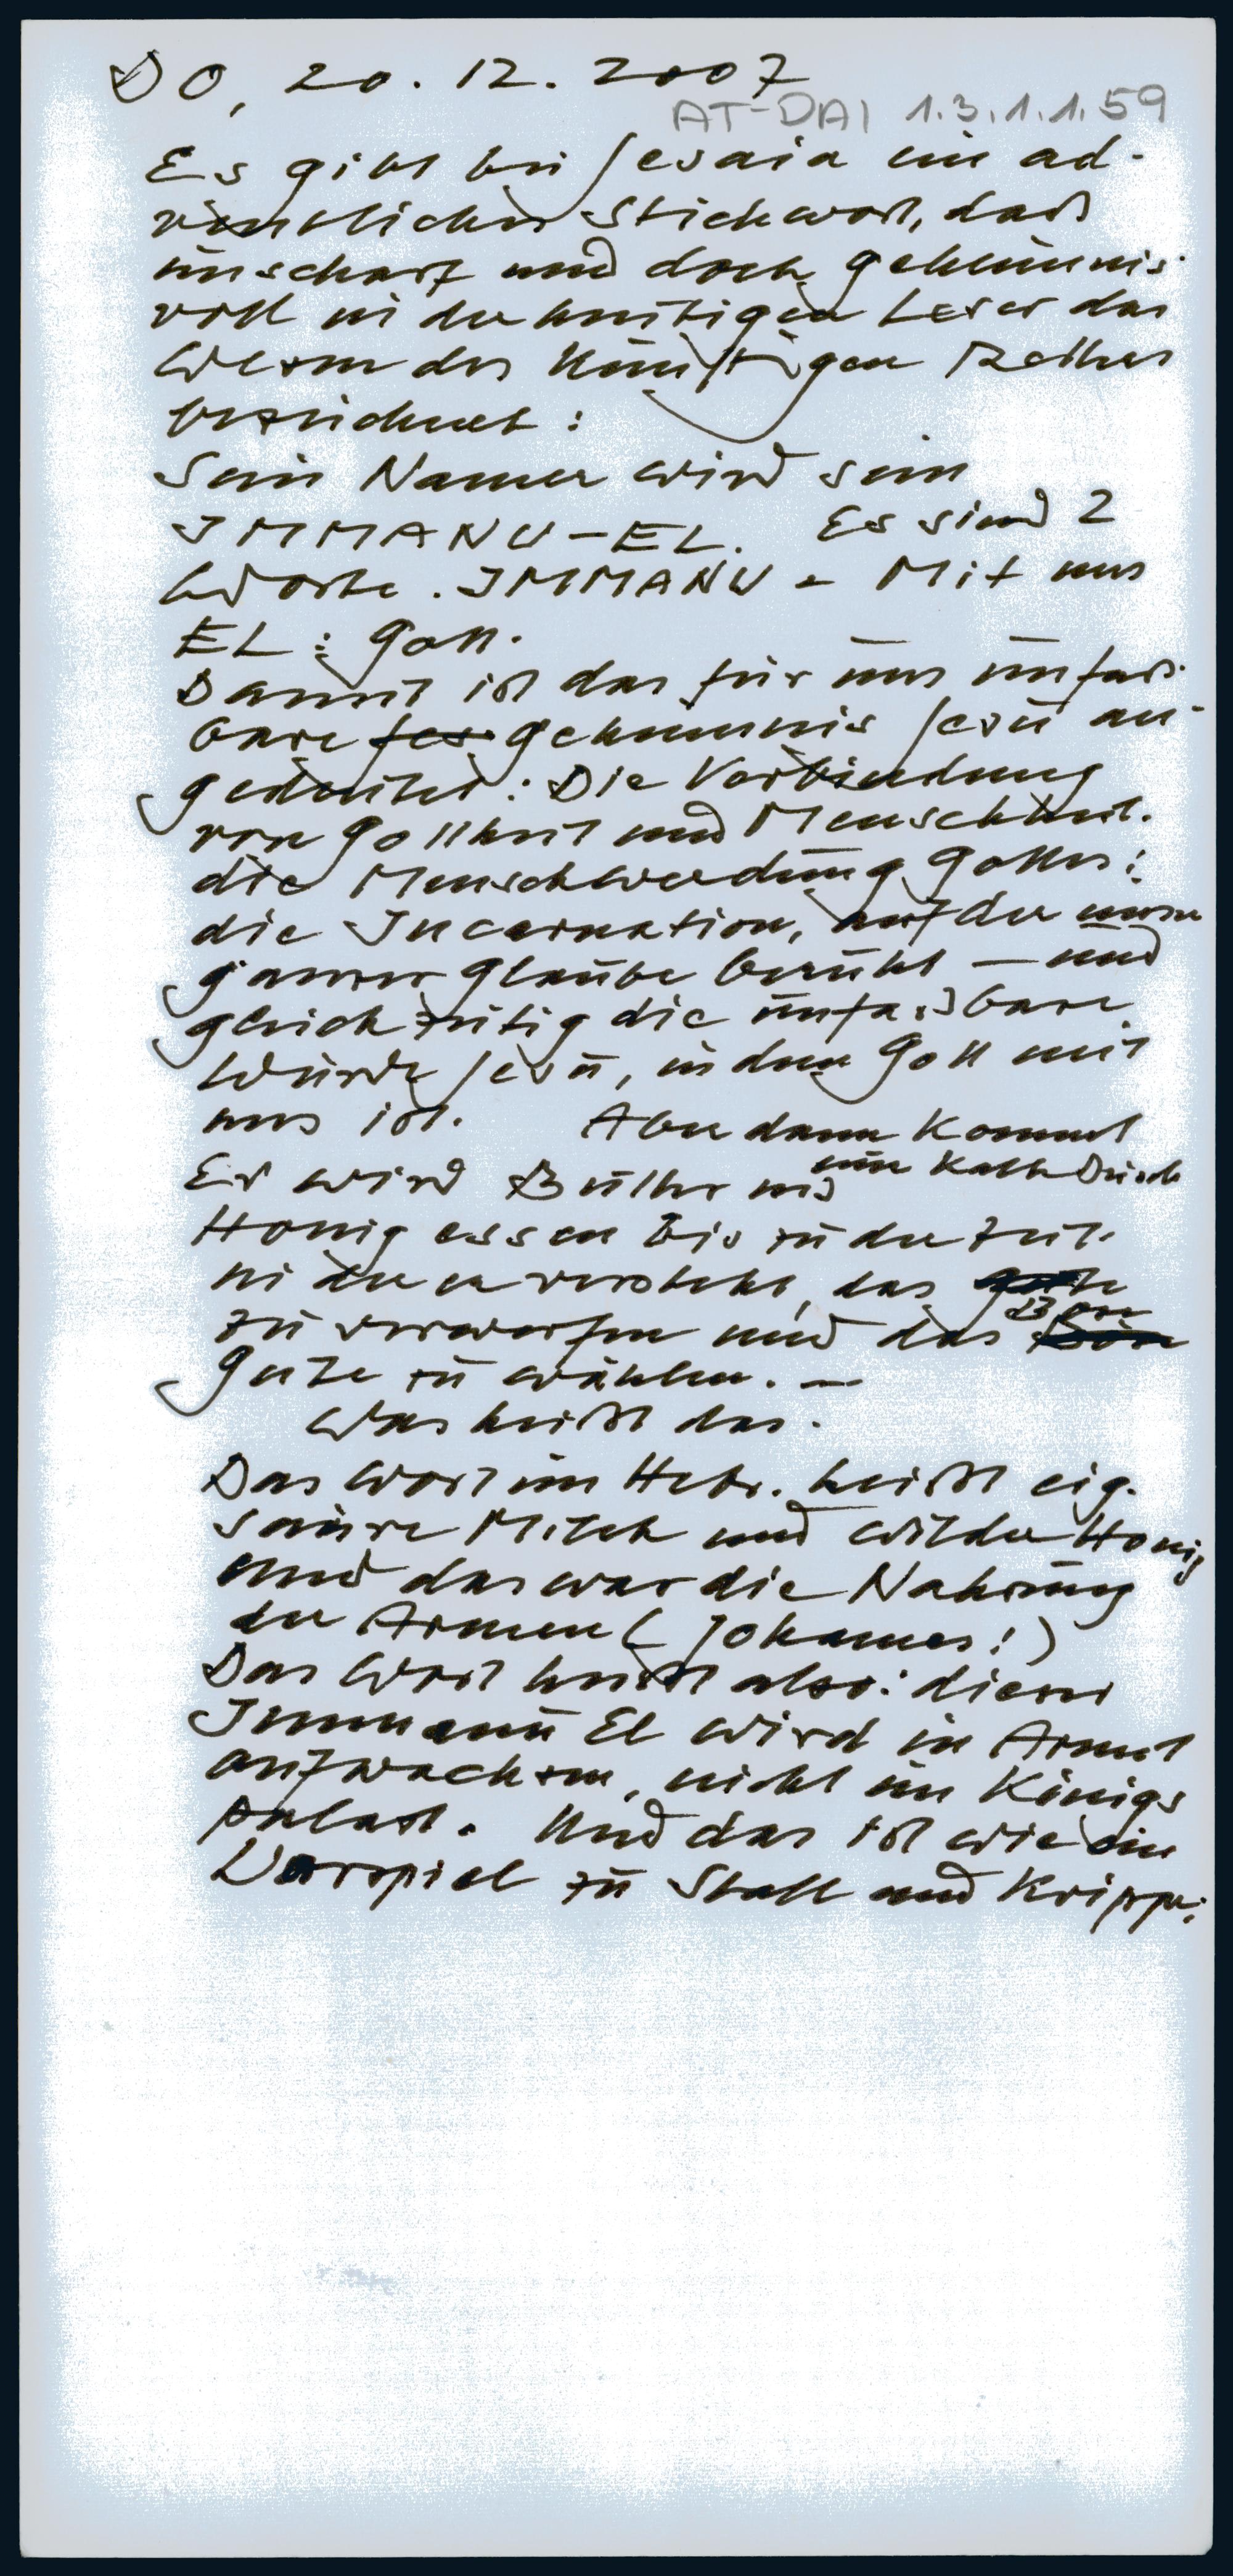 DO, 20. 12. 2007
AT-DAI 1.3.1.1.59
Es gibt bei Jesaia ein ad-
ventliches Stichwort, das
unscharf und doch geheimnis-
voll in der heutigen Leser das
Wesen des künftigen Retters
bezeichnet:
Sein Name wird sein
IMMANU-EL. Es sind 2
Worte. IMMANU - Mit uns
EL: Gott.
Damit ist das für uns unfass-
bare Geheimnis Jesu an-
gedeutet: Die Verbindung
von Gottheit und Menschheit.
die Menschwerdung Gottes:
die Incarnation, auf der unser
ganzer Glaube beruht — und
gleichzeitig die unfassbare
Würde Jesu, in dem Gott mit
uns ist. Aber dann kommt
eine kalte Dusch
Er wird Butter und
Honig essen bis zu der Zeit.
in der er versteht, das
Böse
zu verwerfen und das
Gute zu wählen. —
Was heißt das.
Das Wort im Hebr. heißt eig.
saure Milch und wilder Honig
und das war die Nahrung
der Armen (Johannes!)
Das Wort heißt also: dieser
Immanu El wird in Armut
aufwachsen, nicht im Königs
palast. Und das ist wie ein
Vorspiel zu Stall und Krippe.